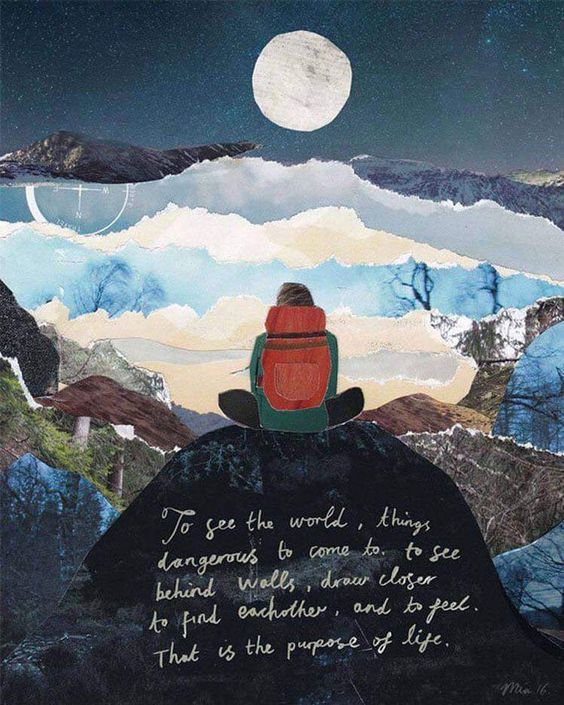 To see the world, things
dangerous to come to. to see
behind walls, draw closer
to find eachother, and to feel.
That is the purpose of life.
Mia 16.